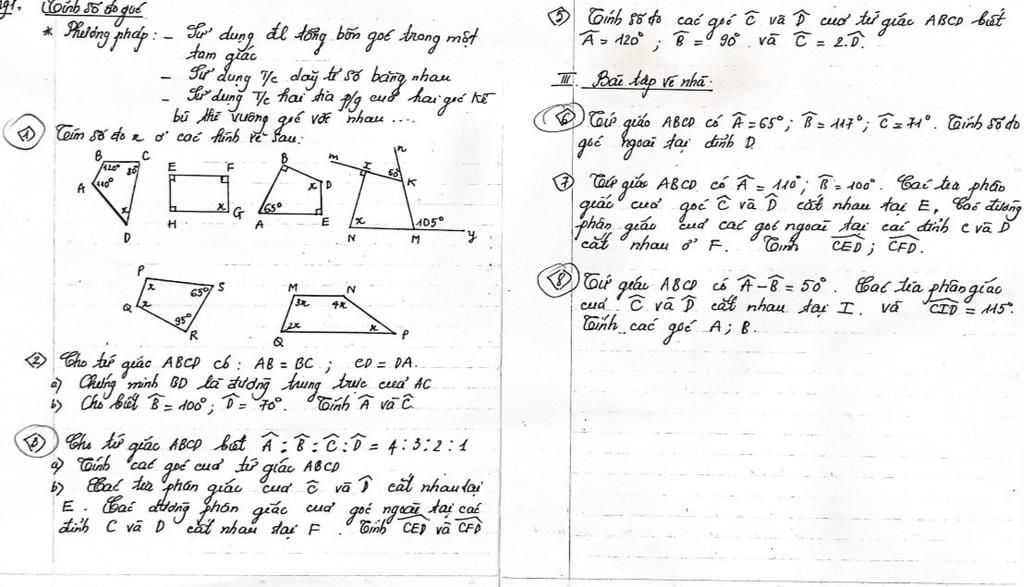 Tính số đo góc
* Phương pháp: - Sử dụng đl tổng bốn góc trong một
tam giác
- Sử dụng T/c dãy tỉ số bằng nhau
- Sử dụng T/c hai tia p/g của hai góc kề
bù thì vuông góc với nhau ....
1 Tìm số đo x ở các hình vẽ sau:
B C 120° 80° A 110° x D
E F H x G
B A 65° x D E
m n x 60° K x N M 105° y
P x S 65° Q x 95° R
M 3x N 4x Q 2x x P
2 Cho tứ giác ABCD có: AB = BC ; CD = DA.
a) Chứng minh BD là đường trung trực của AC
b) Cho biết B̂ = 100° ; D̂ = 70°. Tính Â và Ĉ
3 Cho tứ giác ABCD biết Â : B̂ : Ĉ : D̂ = 4 : 3 : 2 : 1
a) Tính các góc của tứ giác ABCD
b) Các tia phân giác của Ĉ và D̂ cắt nhau tại
E. Các đường phân giác của góc ngoài tại các
đỉnh C và D cắt nhau tại F. Tính CÊD và CF̂D
5 Tính số đo các góc Ĉ và D̂ của tứ giác ABCD biết
Â = 120° ; B̂ = 90° và Ĉ = 2.D̂.
III Bài tập về nhà.
6 Tứ giác ABCD có Â = 65° ; B̂ = 117° ; Ĉ = 71°. Tính số đo
góc ngoài tại đỉnh D.
7 Tứ giác ABCD có Â = 110° ; B̂ = 100°. Các tia phân
giác của góc Ĉ và D̂ cắt nhau tại E, Các đường
phân giác của các góc ngoài tại các đỉnh C và D
cắt nhau ở F. Tính CÊD ; CF̂D.
8 Tứ giác ABCD có Â - B̂ = 50°. Các tia phân giác
của Ĉ và D̂ cắt nhau tại I. và CÎD = 115°.
Tính các góc A ; B.